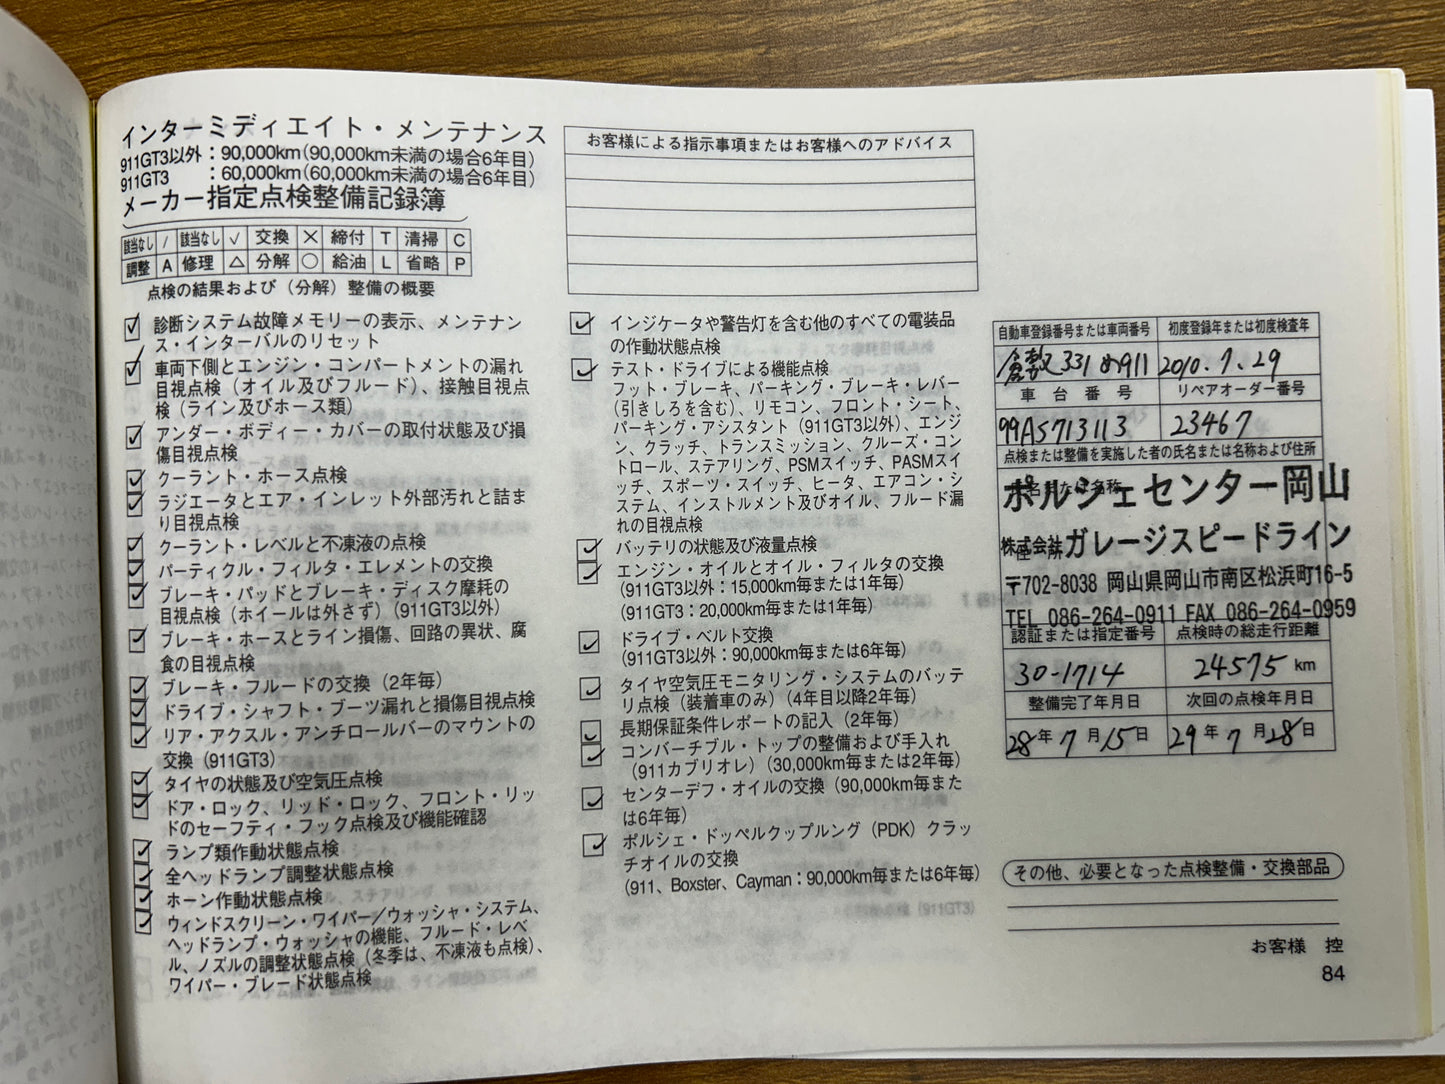 インターミディエイト・メンテナンス
911GT3以外：90,000km（90,000km未満の場合6年目）
911GT3 ：60,000km（60,000km未満の場合6年目）
メーカー指定点検整備記録簿
該当なし / 該当なし √ 交換 × 締付 T 清掃 C
調整 A 修理 △ 分解 ○ 給油 L 省略 P
点検の結果および（分解）整備の概要
診断システム故障メモリーの表示、メンテナン
ス・インターバルのリセット
車両下側とエンジン・コンパートメントの漏れ
目視点検（オイル及びフルード）、接触目視点
検（ライン及びホース類）
アンダー・ボディー・カバーの取付状態及び損
傷目視点検
クーラント・ホース点検
ラジエータとエア・インレット外部汚れと詰ま
り目視点検
クーラント・レベルと不凍液の点検
パーティクル・フィルタ・エレメントの交換
ブレーキ・パッドとブレーキ・ディスク摩耗の
目視点検（ホイールは外さず）（911GT3以外）
ブレーキ・ホースとライン損傷、回路の異状、腐
食の目視点検
ブレーキ・フルードの交換（2年毎）
ドライブ・シャフト・ブーツ漏れと損傷目視点検
リア・アクスル・アンチロールバーのマウントの
交換（911GT3）
タイヤの状態及び空気圧点検
ドア・ロック、リッド・ロック、フロント・リッ
ドのセーフティ・フック点検及び機能確認
ランプ類作動状態点検
全ヘッドランプ調整状態点検
ホーン作動状態点検
ウィンドスクリーン・ワイパー／ウォッシャ・システム、
ヘッドランプ・ウォッシャの機能、フルード・レベ
ル、ノズルの調整状態点検（冬季は、不凍液も点検）、
ワイパー・ブレード状態点検
お客様による指示事項またはお客様へのアドバイス
インジケータや警告灯を含む他のすべての電装品
の作動状態点検
テスト・ドライブによる機能点検
フット・ブレーキ、パーキング・ブレーキ・レバー
（引きしろを含む）、リモコン、フロント・シート、
パーキング・アシスタント（911GT3以外）、エンジ
ン、クラッチ、トランスミッション、クルーズ・コン
トロール、ステアリング、PSMスイッチ、PASMスイ
ッチ、スポーツ・スイッチ、ヒータ、エアコン・シ
ステム、インストルメント及びオイル、フルード漏
れの目視点検
バッテリの状態及び液量点検
エンジン・オイルとオイル・フィルタの交換
（911GT3以外：15,000km毎または1年毎）
（911GT3：20,000km毎または1年毎）
ドライブ・ベルト交換
（911GT3以外：90,000km毎または6年毎）
タイヤ空気圧モニタリング・システムのバッテ
リ点検（装着車のみ）（4年目以降2年毎）
長期保証条件レポートの記入（2年毎）
コンバーチブル・トップの整備および手入れ
（911カブリオレ）（30,000km毎または2年毎）
センターデフ・オイルの交換（90,000km毎また
は6年毎）
ポルシェ・ドッペルクップルング（PDK）クラッ
チオイルの交換
（911、Boxster、Cayman：90,000km毎または6年毎）
自動車登録番号または車両番号 初度登録年または初度検査年
倉敷 331 め911 2010.7.29
車台番号 リペアオーダー番号
99AS713113 23467
点検または整備を実施した者の氏名または名称および住所
ポルシェセンター岡山
株式会社ガレージスピードライン
〒702-8038 岡山県岡山市南区松浜町16-5
TEL 086-264-0911 FAX 086-264-0959
認証または指定番号 点検時の総走行距離
30-1714 24575 km
整備完了年月日 次回の点検年月日
28年7月15日 29年7月28日
その他、必要となった点検整備・交換部品
お客様 控
84